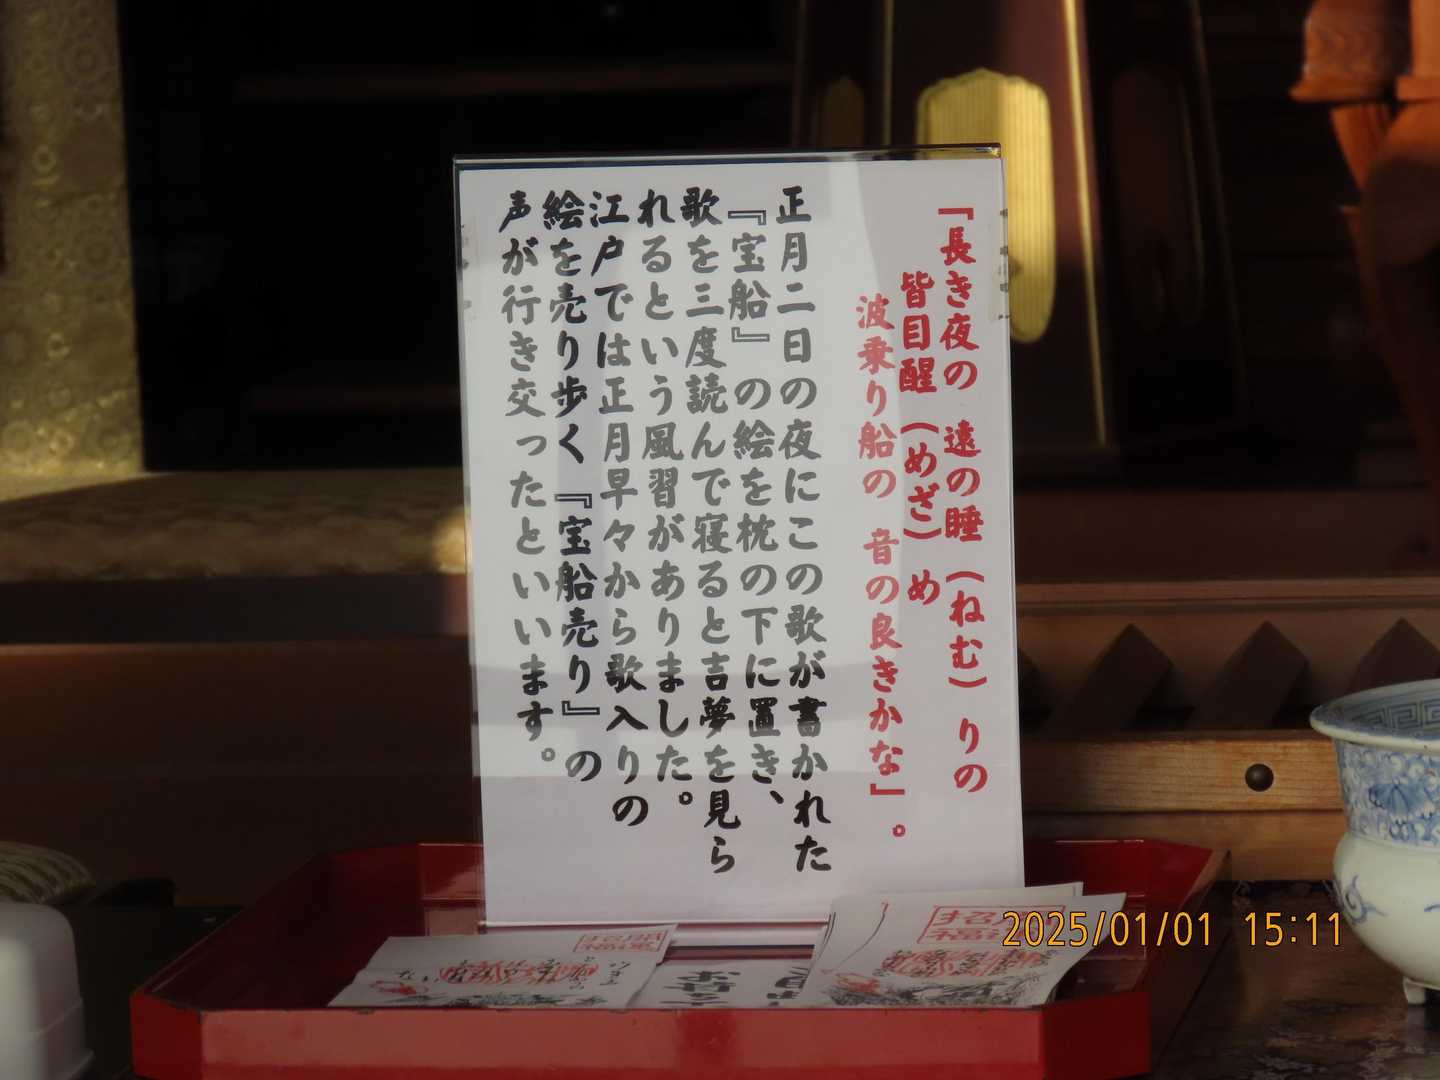 「長き夜の　遠の睡（ねむ）りの
皆目醒（めざ）め
波乗り船の　音の良きかな」。
正月二日の夜にこの歌が書かれた
『宝船』の絵を枕の下に置き、
歌を三度読んで寝ると吉夢を見ら
れるという風習がありました。
江戸では正月早々から歌入りの
絵を売り歩く『宝船売り』の
声が行き交ったといいます。
2025/01/01 15:11